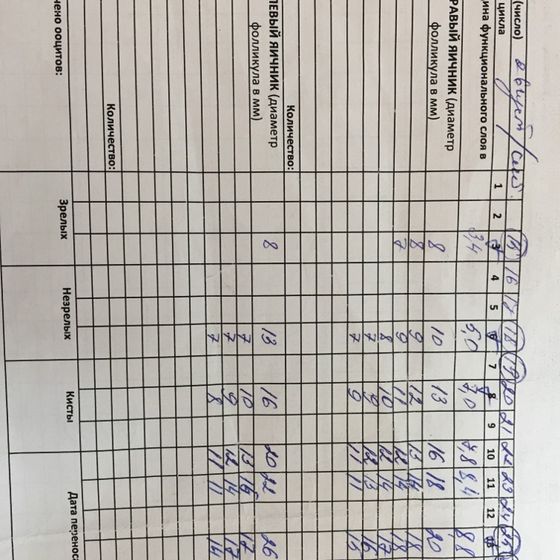 (число) август/сент. 15 16 17 18 19 20 21 22 23 24
цикла 1 2 3 4 5 6 7 8 9 10 11 12
ина функционального слоя в 3,4 5,0 7,0 7,8 8,4 8,8
РАВЫЙ ЯИЧНИК (диаметр
фолликула в мм) 8 10 13 16 18 20
8 9 12 13 14 18
7 9 11 12 14 18
8 10 12 14
7 9 12 13 16
7 9 11 11 15
Количество:
ЛЕВЫЙ ЯИЧНИК (диаметр
фолликула в мм) 8 13 16 20 22 26
7 10 13 16 17
7 9 12 14 17
7 8 11 11 14
Количество:
чено ооцитов: Зрелых Незрелых Кисты Дата перенос